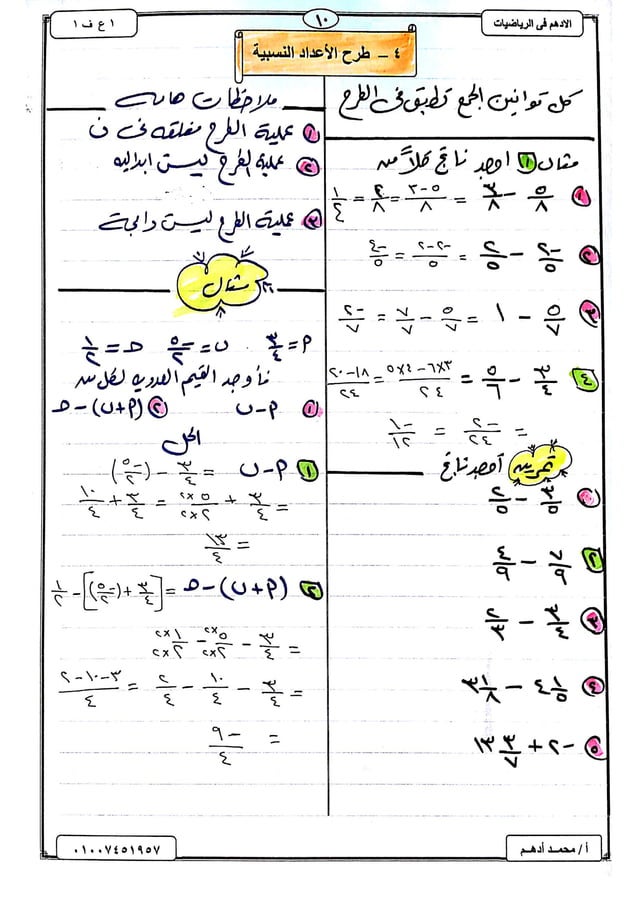 الادهم فى الرياضيات
١٠
١ ع ف ١
٤ – طرح الأعداد النسبية
كل قوانين الجمع تطبق فى الطرح
مثال ١ أوجد ناتج كلاً من
١ ٥/٨ − ٣/٨ = (٥−٣)/٨ = ٢/٨ = ١/٤
٢ −٢/٥ − ٢/٥ = (−٢−٢)/٥ = −٤/٥
٣ ٥/٧ − ١ = ٥/٧ − ٧/٧ = −٢/٧
٤ ٣/٤ − ٥/٦ = (٣×٦−٤×٥)/٢٤ = (١٨−٢٠)/٢٤
= −٢/٢٤ = −١/١٢
تمرين أوجد ناتج
٣/٥ − ٢/٥
٢ ٧/٩ − ٤/٩
٣ ٣/٤ − ٢/٣
٤ ٤ ١/٥ − ٣ ١/٨
٥ −٢ + ١٣ ٣/٧
ملاحظات هامه
١ عملية الطرح مغلقه فى ن
٢ عملية الطرح ليست ابداليه
٣ عملية الطرح ليست دامجة
مثال
م = ٣/٤ ن = −٥/٢ ح = ١/٢
فأوجد القيم العدديه لكل من
١ م − ن ٢ (م + ن) − ح
الحل
١ م − ن = ٣/٤ − (−٥/٢)
= ٣/٤ + ٥×٢/٢×٢ = ٣/٤ + ١٠/٤
= ١٣/٤
٢ (م + ن) − ح = [٣/٤ + (−٥/٢)] − ١/٢
= ٣/٤ − ٥×٢/٢×٢ − ١×٢/٢×٢
= ٣/٤ − ١٠/٤ − ٢/٤ = (٣−١٠−٢)/٤
= −٩/٤
أ / محمد أدهم
٠١٠٠٧٤٥١٩٥٧